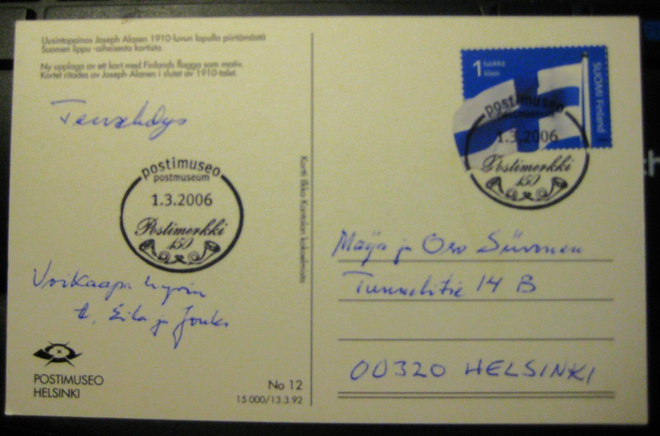 Uusintapainos Joseph Alasen 1910-luvun lopulla piirtämästä
Suomen lippu -aiheisesta kortista.
Ny upplaga av ett kort med Finlands flagga som motiv.
Kortet ritades av Joseph Alanen i slutet av 1910-talet.
Tervehdys
postimuseo
postmuseum
1.3.2006
Postimerkki
150
Voikaapa hyvin
t. Eila ja Jouko
POSTIMUSEO
HELSINKI
No 12
15 000/13.3.92
Kortti Ilkka Kantolan kokoelmista
1 luokka
klass
SUOMI Finland
postimuseo
postmuseum
1.3.2006
Postimerkki
150
Maija ja Orvo Siivonen
Tunnelitie 14 B
00320 HELSINKI